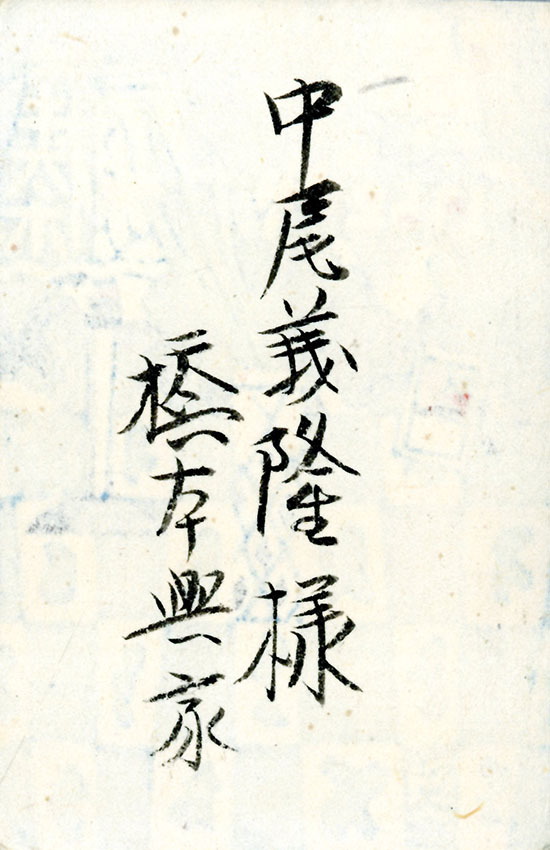 中尾義隆様
橋本興家